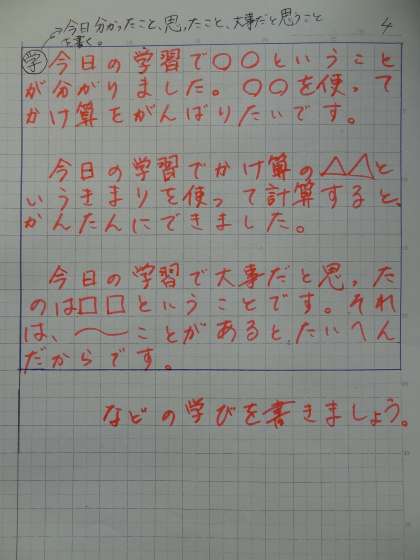 →今日分かったこと、思ったこと、大事だと思うこと
を書く。
4
学 今日の学習で○○ということ
が分かりました。○○を使って
かけ算をがんばりたいです。
今日の学習でかけ算の△△と
いうきまりを使って計算すると、
かんたんにできました。
今日の学習で大事だと思った
のは□□ということです。それ
は、〜ことがあると、たいへん
だからです。
などの学びを書きましょう。